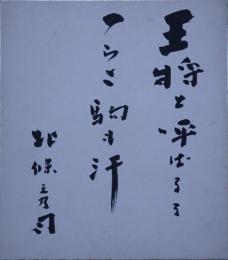 王将と呼ばるる
つらさ駒も汗
北條秀司